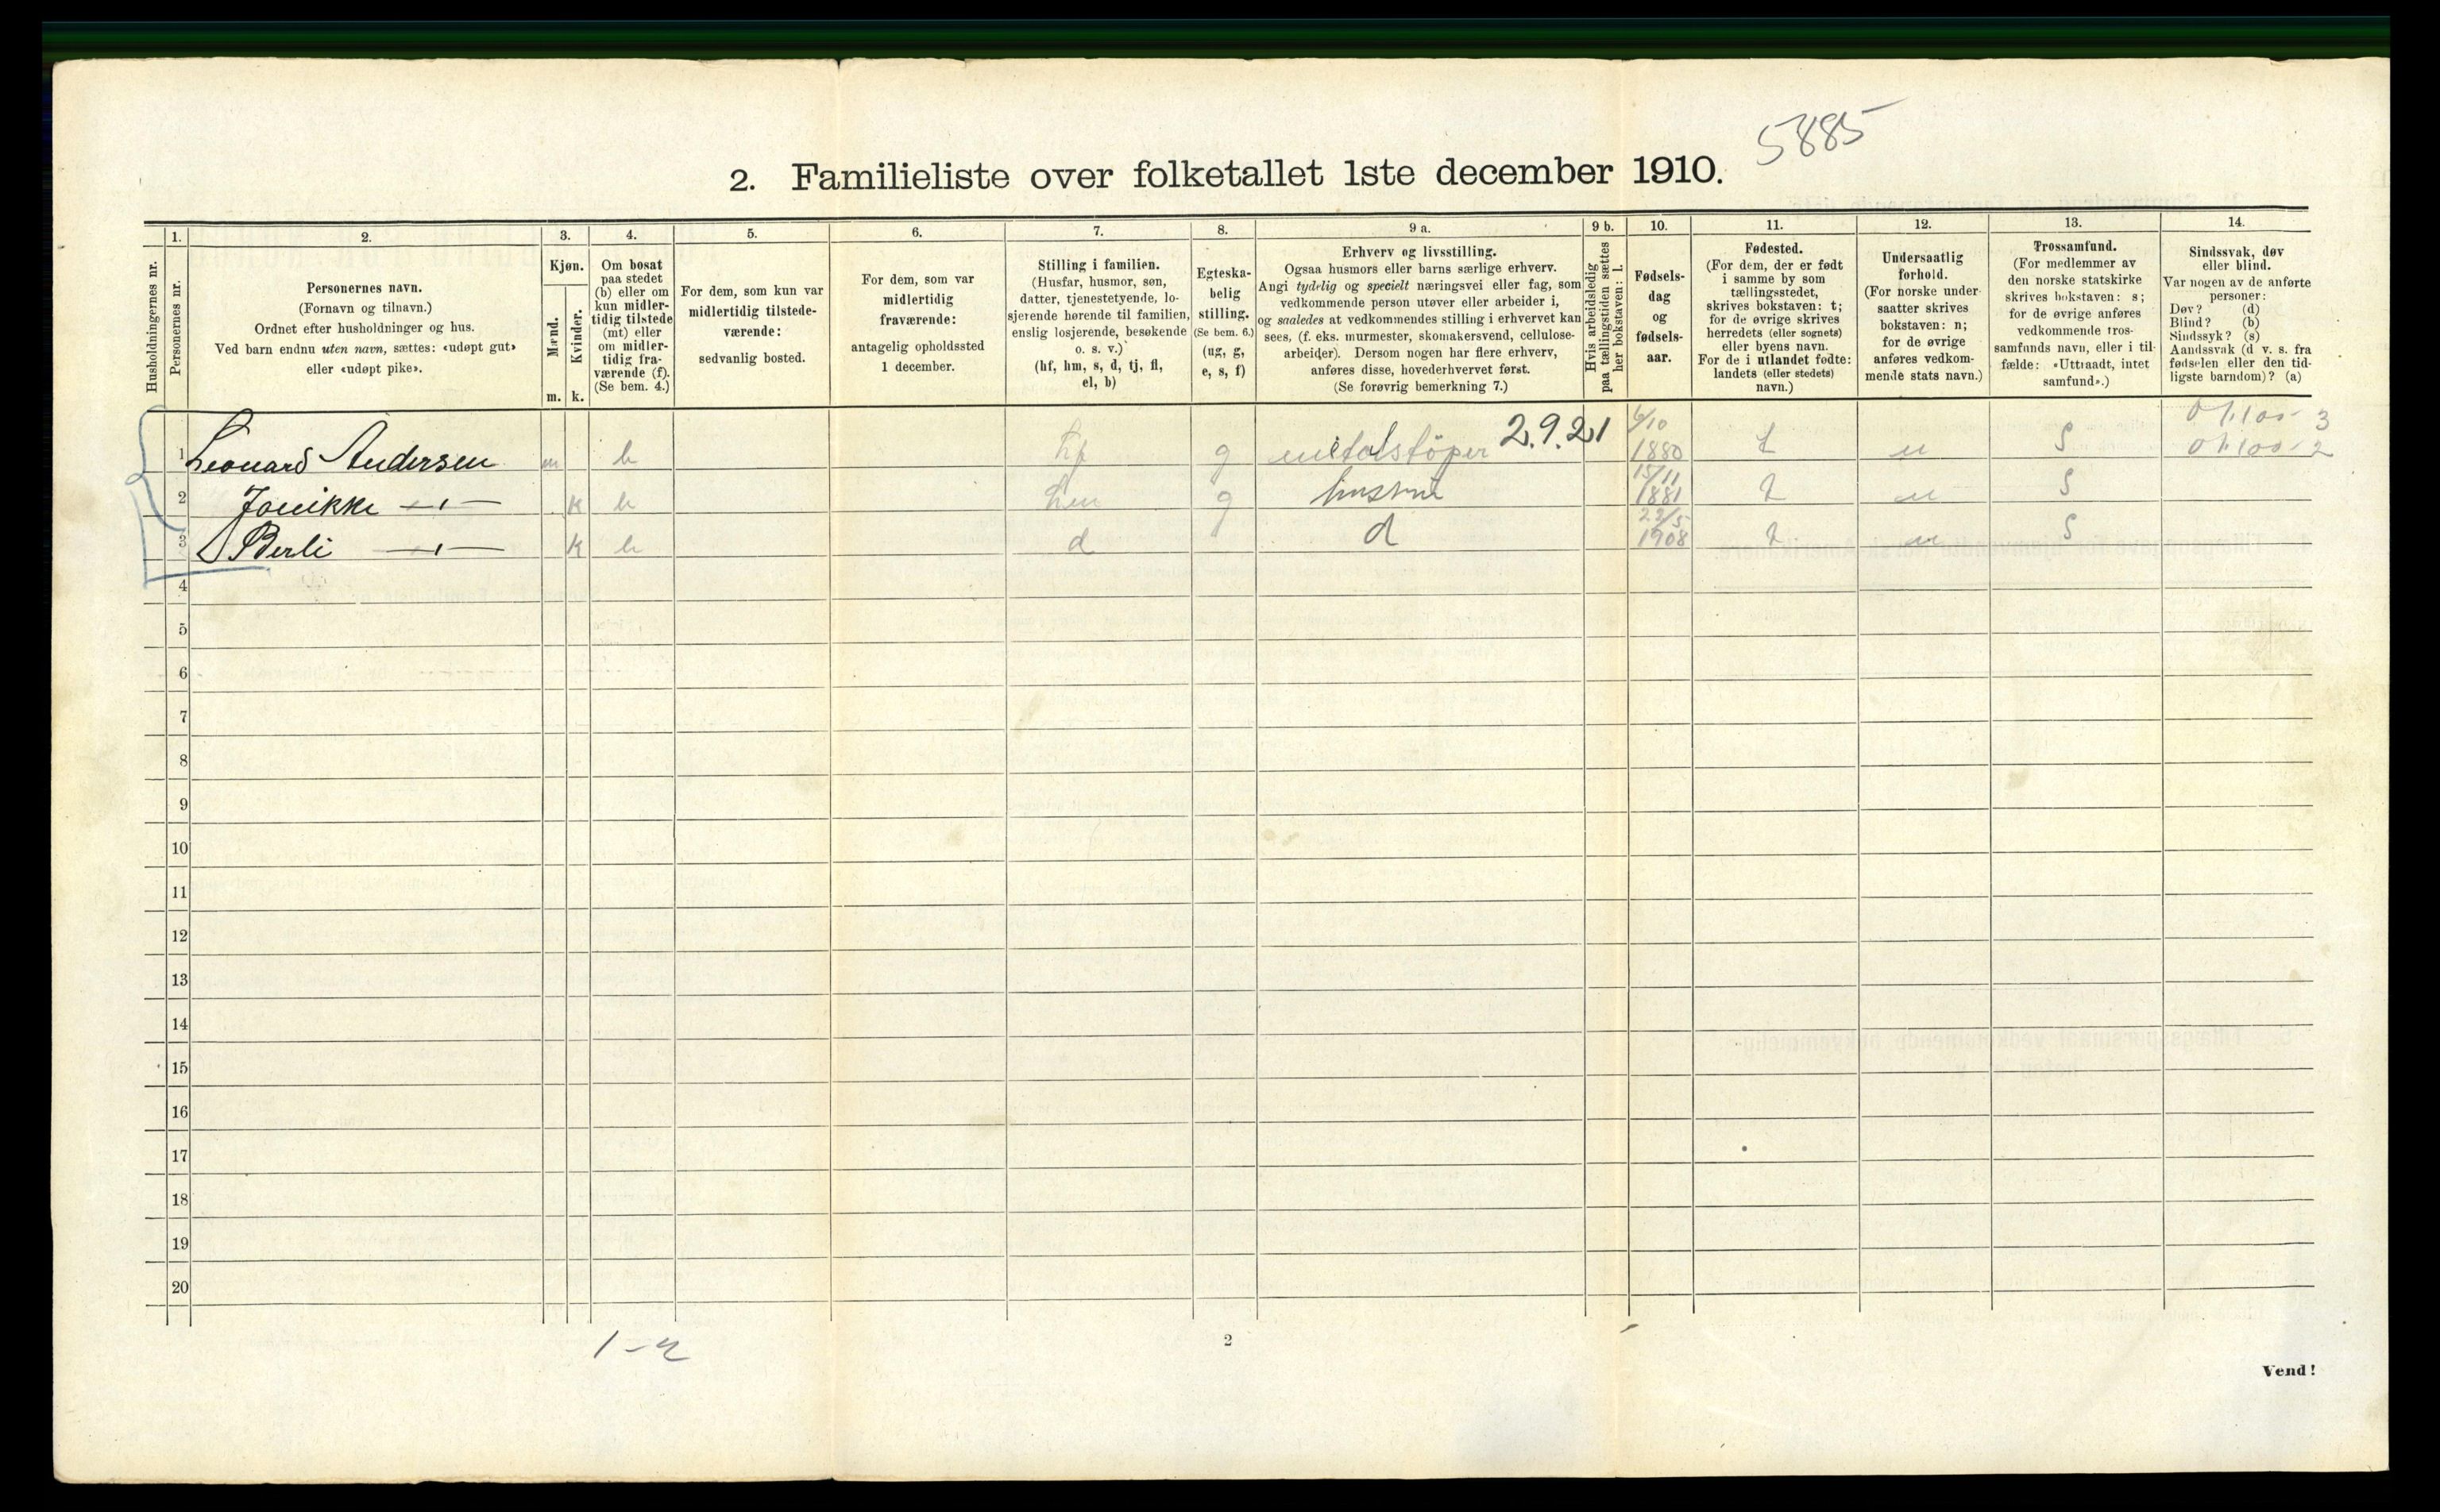 5885
2. Familieliste over folketallet 1ste december 1910.
Husholdningernes nr.
1.
Personernes nr.
2.
Personernes navn.
(Fornavn og tilnavn.)
Ordnet efter husholdninger og hus.
Ved barn endnu uten navn, sættes: «udøpt gut»
eller «udøpt pike».
3.
Kjøn.
Mænd.
Kvinder.
m. k.
4.
Om bosat
paa stedet
(b) eller om
kun midler-
tidig tilstede
(mt) eller
om midler-
tidig fra-
værende (f).
(Se bem. 4.)
5.
For dem, som kun var
midlertidig tilstede-
værende:
sedvanlig bosted.
6.
For dem, som var
midlertidig
fraværende:
antagelig opholdssted
1 december.
7.
Stilling i familien.
(Husfar, husmor, søn,
datter, tjenestetyende, lo-
sjerende hørende til familien,
enslig losjerende, besøkende
o. s. v.)
(hf, hm, s, d, tj, fl,
el, b)
8.
Egteska-
belig
stilling.
(Se bem. 6.)
(ug, g,
e, s, f)
9 a.
Erhverv og livsstilling.
Ogsaa husmors eller barns særlige erhverv.
Angi tydelig og specielt næringsvei eller fag, som
vedkommende person utøver eller arbeider i,
og saaledes at vedkommendes stilling i erhvervet kan
sees, (f. eks. murmester, skomakersvend, cellulose-
arbeider). Dersom nogen har flere erhverv,
anføres disse, hovederhvervet først.
(Se forøvrig bemerkning 7.)
9 b.
Hvis arbeidsledig
paa tællingstiden sættes
her bokstaven: l.
10.
Fødsels-
dag
og
fødsels-
aar.
11.
Fødested.
(For dem, der er født
i samme by som
tællingsstedet,
skrives bokstaven: t;
for de øvrige skrives
herredets (eller sognets)
eller byens navn.
For de i utlandet fødte:
landets (eller stedets)
navn.)
12.
Undersaatlig
forhold.
(For norske under-
saatter skrives
bokstaven: n;
for de øvrige
anføres vedkom-
mende stats navn.)
13.
Trossamfund.
(For medlemmer av
den norske statskirke
skrives bokstaven: s;
for de øvrige anføres
vedkommende tros-
samfunds navn, eller i til-
fælde: «Uttraadt, intet
samfund».)
14.
Sindssvak, døv
eller blind.
Var nogen av de anførte
personer:
Døv? (d)
Blind? (b)
Sindssyk? (s)
Aandssvak (d v. s. fra
fødselen eller den tid-
ligste barndom)? (a)
1 Leonard Andersen m b hf g metalstöper 2.9.21 6/10 1880 t n S
2 Jonikke —"— k b hm g hustru 15/11 1881 t n S
3 Berli —"— k b d d 22/5 1908 t n S
4
5
6
7
8
9
10
11
12
13
14
15
16
17
18
19
20
1-2
2
Vend!